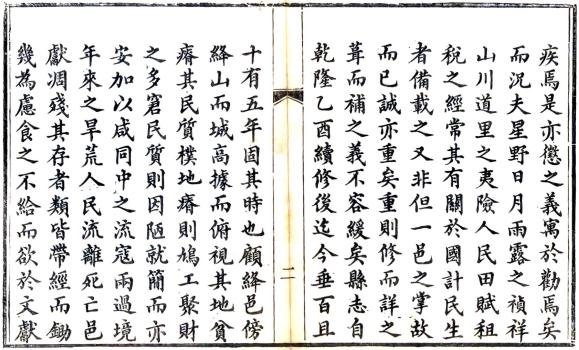 疾焉是亦懲之義寓於勸焉矣
而況夫星野日月雨露之禎祥
山川道里之夷險人民田賦租
稅之經常其有關於國計民生
者備載之又非但一邑之掌故
而已誠亦重矣重則修而詳之
葺而補之義不容緩矣縣志自
乾隆乙酉續修後迄今垂百且
二
十有五年固其時也顧絳邑傍
絳山而城高據而俯視其地貧
瘠其民質樸地瘠則鳩工聚財
之多窘民質則因陋就簡而亦
安加以咸同中之流寇兩過境
年來之旱荒人民流離死亡邑
獻凋殘其存者類皆帶經而鋤
幾為慮食之不給而欲於文獻